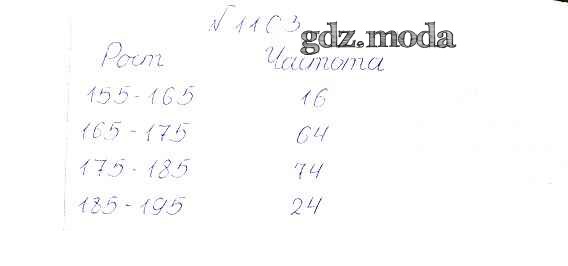 № 1103
gdz.moda
Рост Частота
155-165 16
165-175 64
175-185 74
185-195 24